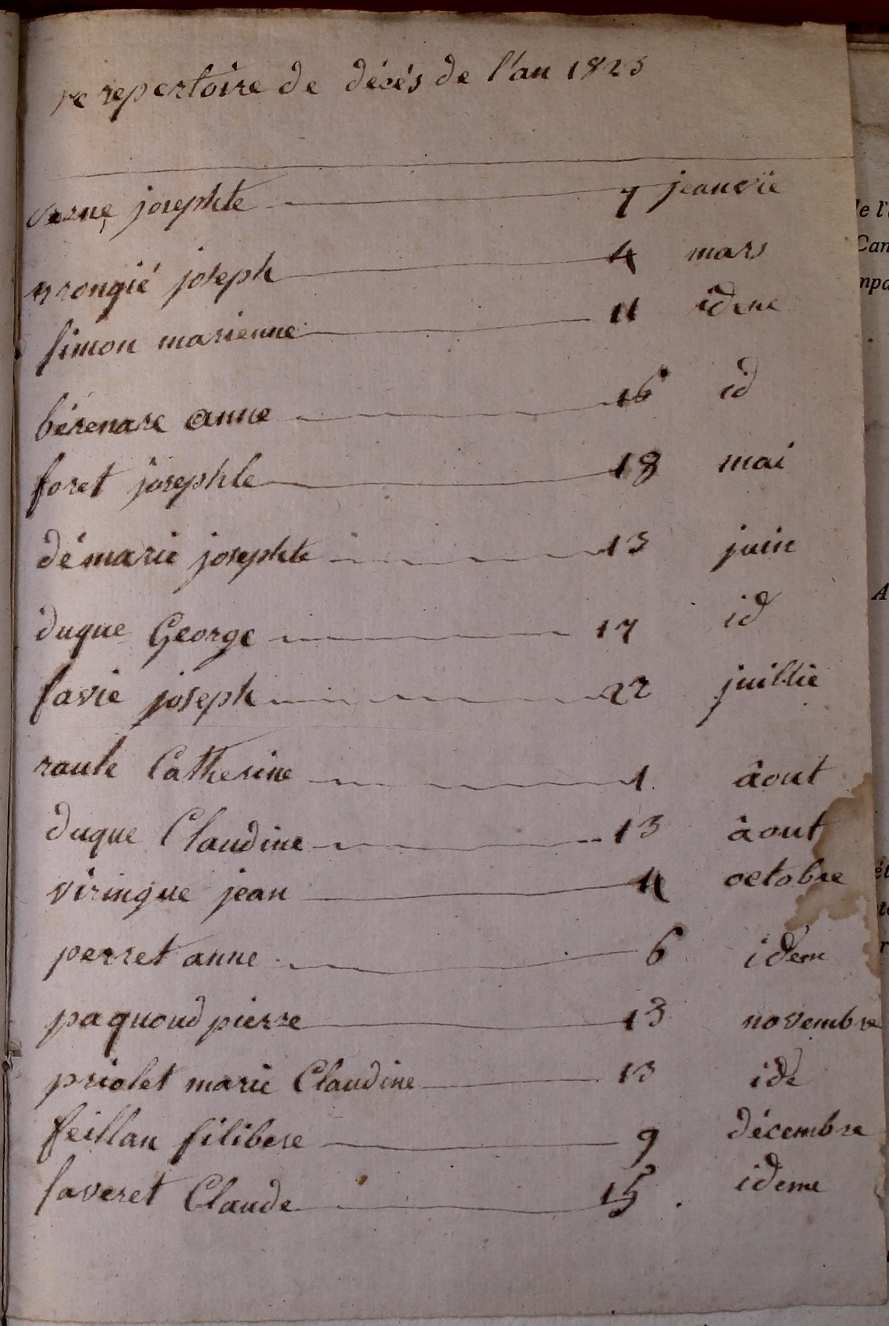 repertoire de décés de l'an 1823
josephte 7 jeanvie
joseph 4 mars
simon marienne 11 ideme
bérenare anne 16 id
foret josephte 18 mai
démarie josephte 13 juin
duque George 17 id
favie joseph 22 juillie
Catherine 1 âout
duque Claudine 13 âout
viringue jean 4 octobre
perret anne 6 idem
paquoud pierre 13 novembre
priolet marie Claudine 13 ide
feillan filibere 9 décembre
faveret Claude 15 ideme